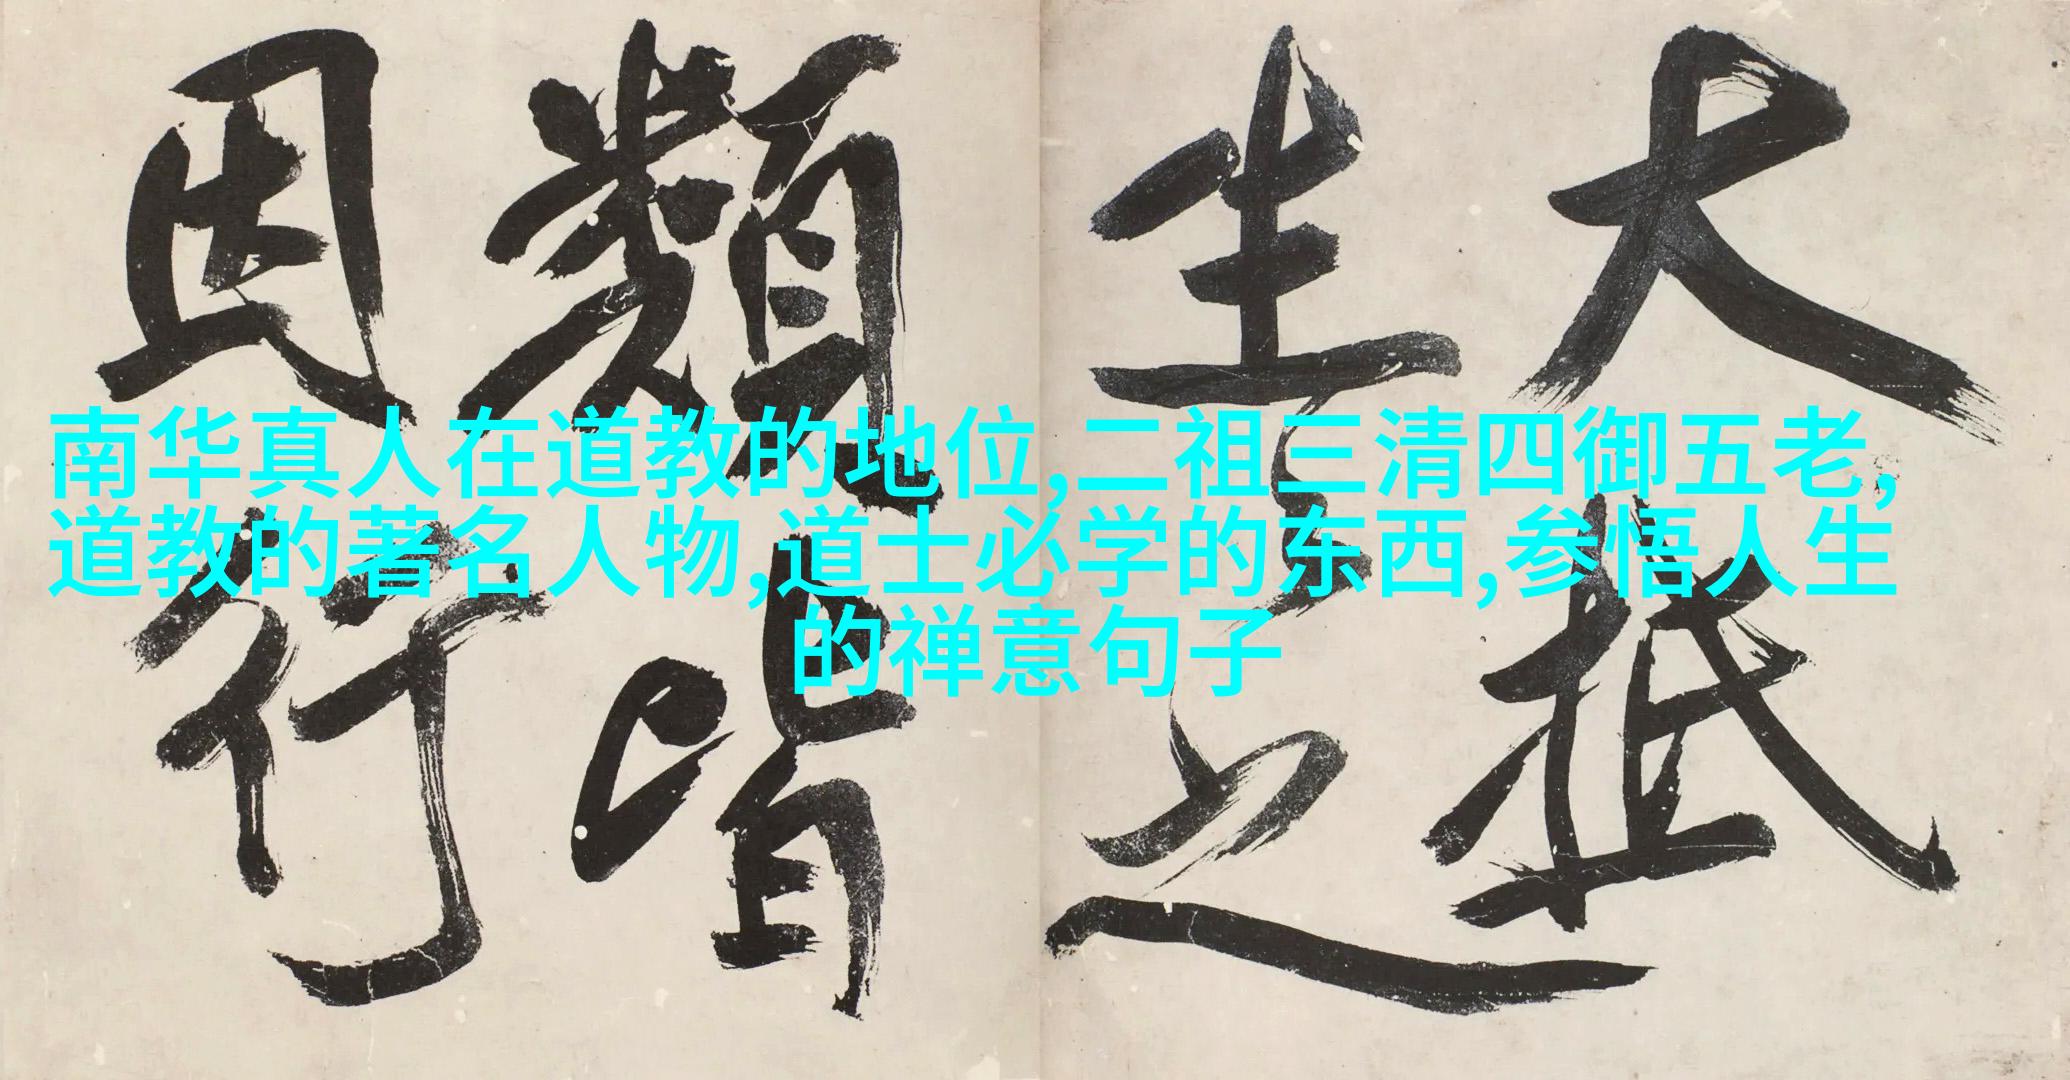 大抵
生之
類皆
因行
南华真人在道教的地位,二祖三清四御五老,
道教的著名人物,道士必学的东西,参悟人生
的禅意句子